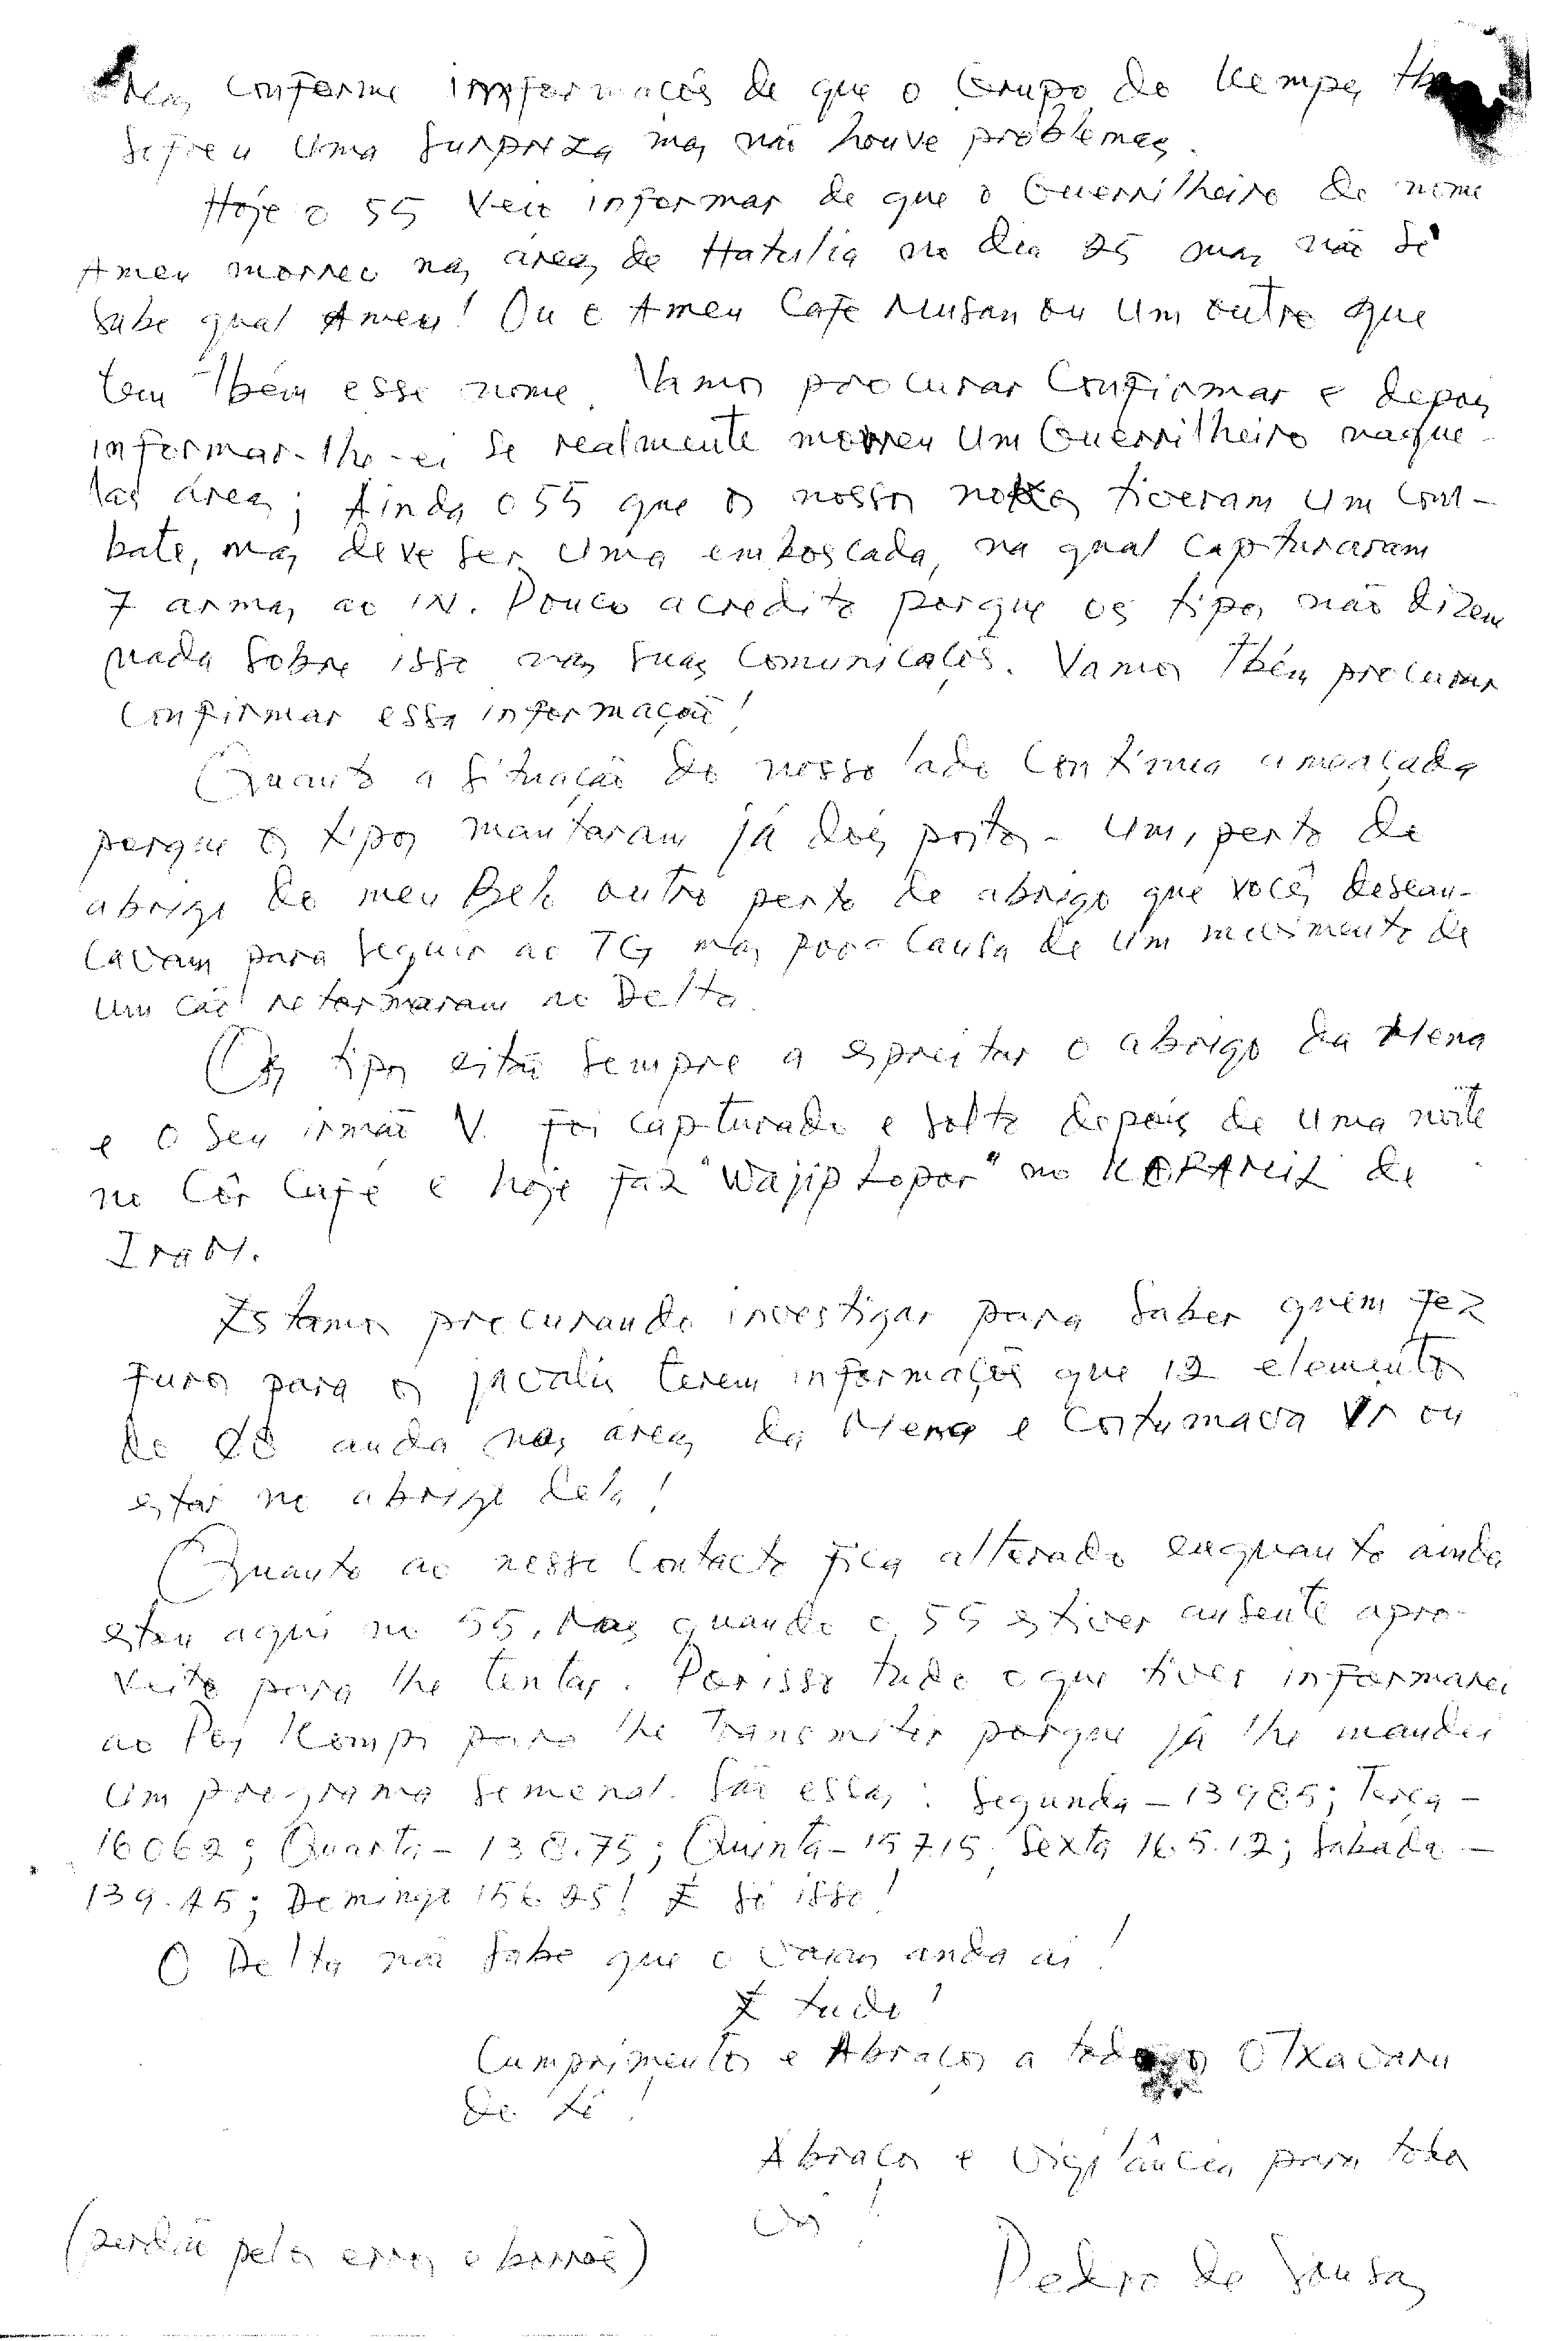 conforme innformacōs de que o Grupo do Kempe
Sofreu uma Surpreza mas não houve problemas.
Hoje o 55 veio informar de que o Guerrilheiro de nome
Ameu morreu nas áreas de Hatulia no dia 25 mas não se
sabe qual Ameu! Ou e Ameu Cafe Musan ou um outro que
tem Tbém esse nome. Vamos procurar Confirmar e depois
informar-lhe-ei se realmente morreu um Guerrilheiro naque-
las áreas; Ainda o 55 que os nossos tiveram um Com-
bate, mas deve ser uma emboscada, na qual capturaram
7 armas ao IN. Pouco acredito porque os tipos não dizem
nada sobre isso nas suas Comunicacōes. Vamos Tbém procurar
confirmar essa informação!
Quanto a Situação do nosso lado Continua ameaçada
porque os tipos mantaram já dois postos - Um, perto de
abrigo do meu Belo outro perto de abrigo que vocês descan-
cavam para seguir ao TG mas por causa de um movimento de
um cão retornaram no Delta.
Os tipos estão sempre a espreitar o abrigo da Mena
e o seu irmão V. foi capturado e solto depois de uma noite
no Côr Café e hoje faz "Wajip Lapor" no KORAMIL de
Estamos procurando investigar para saber quem fez
furos para os javalis terem informações que 12 elementos
do anda nas áreas da Mena e Costumava Vr ou
estar no abrigo dela!
Quanto ao nosso Contacto fica alterado enquanto ainda
estou aqui no 55, Mas quando o 55 estiver ausente apro-
veito para lhe tentar. Porisso tudo o que tiver informarei
ao para lhe transmitir porque já lhe mandei
um programa semenal. São essas: Segunda - 13985; Terça -
16062; Quarta - 138.75; Quinta - 15715; Sexta 16.5.12; Sabado -
139.45; Domingo É só isso!
O Delta não sabe que o anda aí!
É tudo!
Cumprimentos e Abraços a todos
do
Abraços e Vigilância para todos
Vós!
(perdão pelos erros e borrões)
Pedro de Sousa